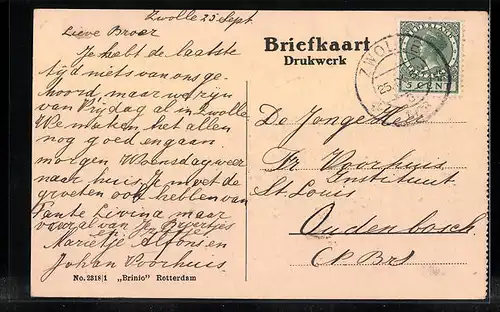 Zwolle 25 Sept.
Lieve Broer
Je hebt de laatste
tijd niets van ons ge-
hoord, maar we zijn
van Vrijdag al in Zwolle
We maken het allen
nog goed en gaan
morgen Woensdag weer
naar huis. Je moet de
groeten ook hebben van
Tante Livina maar
vooral van Je Broertjes
Marietje Alfons en
Johan Voorhuis
No. 2318/1 „Brinio" Rotterdam
Briefkaart
Drukwerk
ZWOLLE
25
NEDERLAND
5 CENT
De Jonge Heer
Fr Voorhuis
Instituut
St Louis
Oudenbosch
(N. Br)